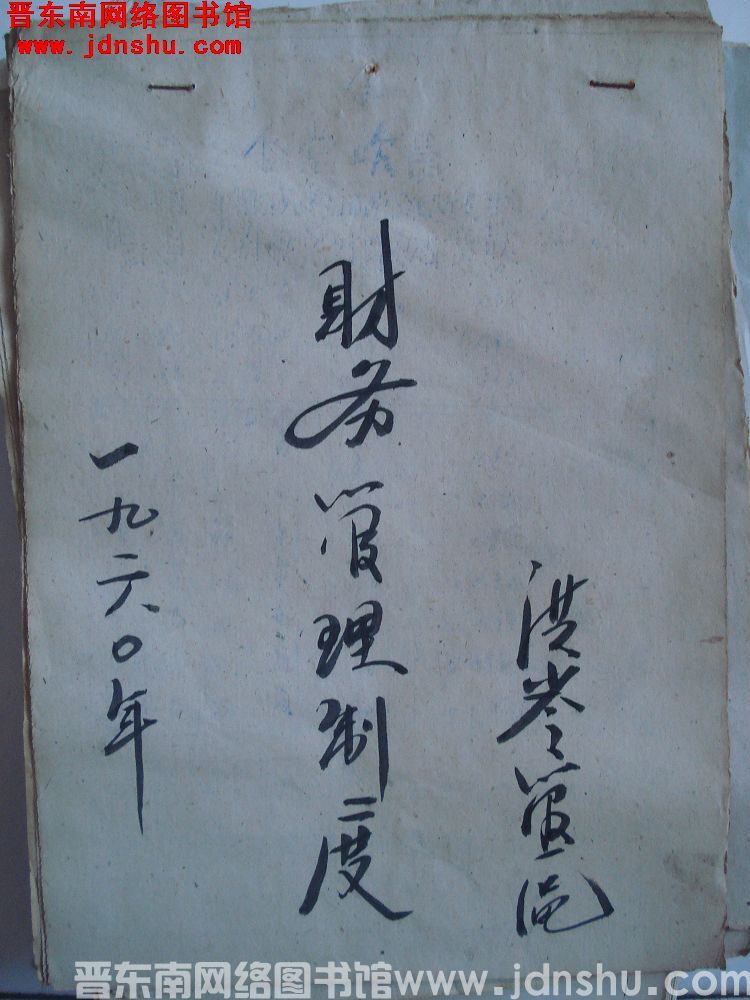 晋东南网络图书馆
www.jdnshu.com
洪岺管区
财务管理制度
一九六〇年
晋东南网络图书馆www.jdnshu.com